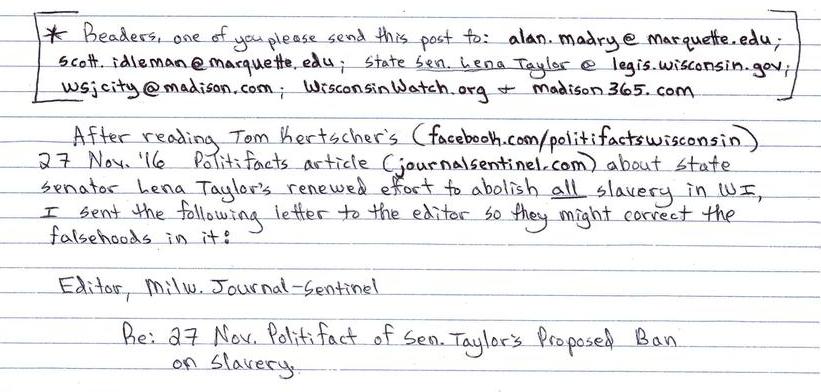 * Readers, one of you please send this post to: alan.madry@marquette.edu;
scott.idleman@marquette.edu; State Sen. Lena Taylor @ legis.wisconsin.gov;
wsjcity@madison.com; WisconsinWatch.org + Madison365.com
After reading Tom Kertscher's (facebook.com/politifactswisconsin)
27 Nov. '16 Politifacts article (journalsentinel.com) about state
senator Lena Taylor's renewed effort to abolish all slavery in WI,
I sent the following letter to the editor so they might correct the
falsehoods in it:
Editor, Milw. Journal-Sentinel
Re: 27 Nov. Politifact of Sen. Taylor's Proposed Ban
on Slavery.